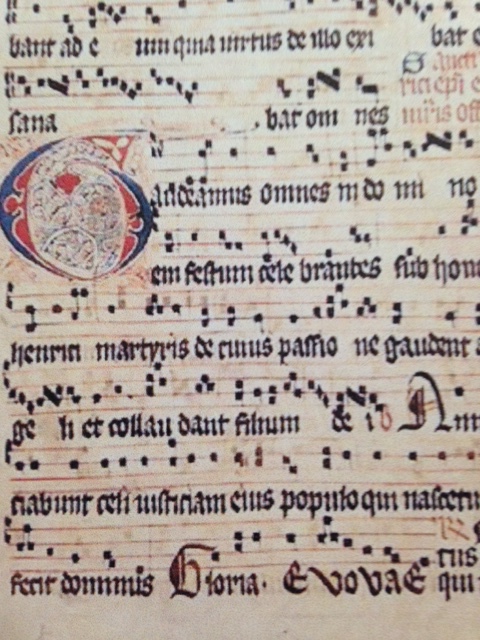 bant ad e um quia uirtus de illo exi bat e
Sancti
rici epi e
sana bat om nes
Gaudeamus omnes in do mi no
em festum cele brantes sub hono
henrici martyris de cuius passio ne gaudent a
ge li et collau dant filium de i Ann
ciabunt celi iusticiam eius populo qui nascetu
fecit dominus Gloria. EVOVAE qui
tus